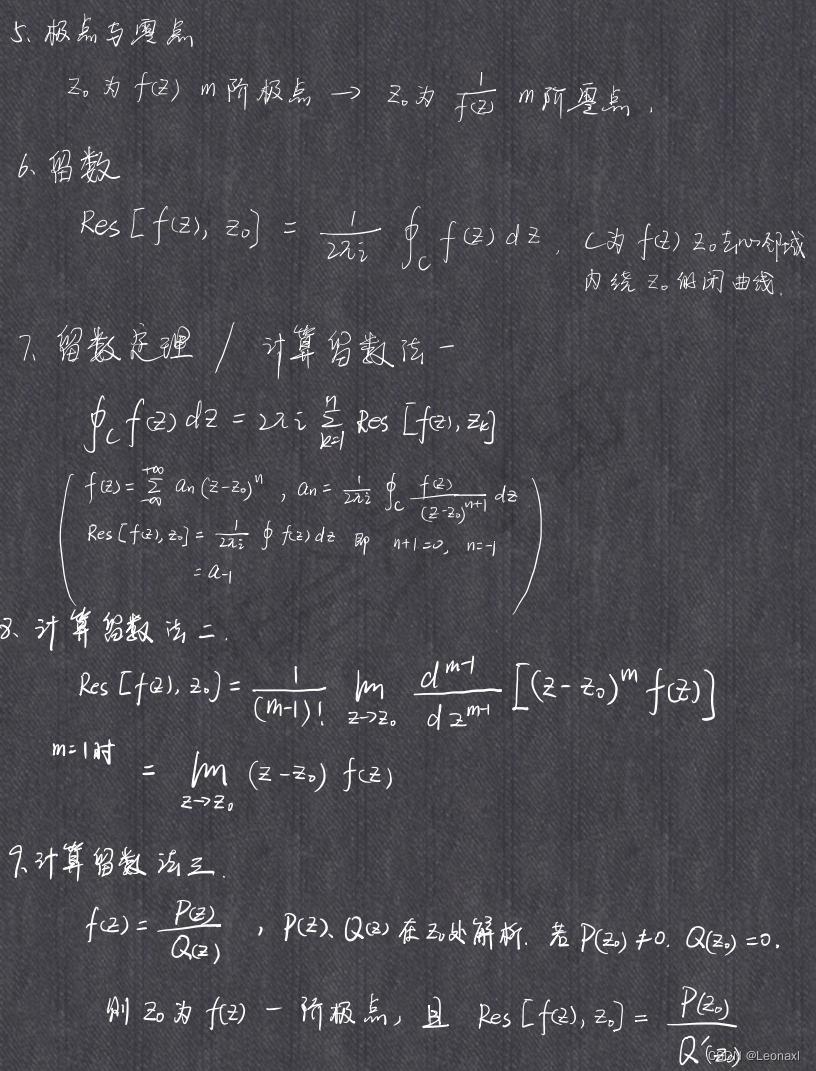 5、极点与零点
z₀为 f(z) m阶极点 → z₀为 1/f(z) m阶零点.
6、留数
Res[f(z), z₀] = 1/(2πi) ∮_C f(z)dz. C为 f(z) z₀去心邻域
内绕 z₀ 的闭曲线.
7、留数定理 / 计算留数法一
∮_C f(z)dz = 2πi ∑_{k=1}^{n} Res[f(z), z_k]
f(z) = ∑_{-∞}^{+∞} aₙ(z-z₀)ⁿ , aₙ = 1/(2πi) ∮_C f(z)/(z-z₀)^{n+1} dz
Res[f(z), z₀] = 1/(2πi) ∮ f(z)dz 即 n+1=0, n=-1
= a₋₁
8、计算留数法二.
Res[f(z), z₀] = 1/(m-1)! lim_{z→z₀} d^{m-1}/dz^{m-1} [(z-z₀)^m f(z)]
m=1时 = lim_{z→z₀} (z-z₀) f(z)
9、计算留数法三.
f(z) = P(z)/Q(z) , P(z)、Q(z) 在z₀处解析. 若 P(z₀)≠0. Q(z₀)=0.
则 z₀为 f(z) 一阶极点, 且 Res[f(z), z₀] = P(z₀)/Q'(z₀)
CSDN @Leonaxl